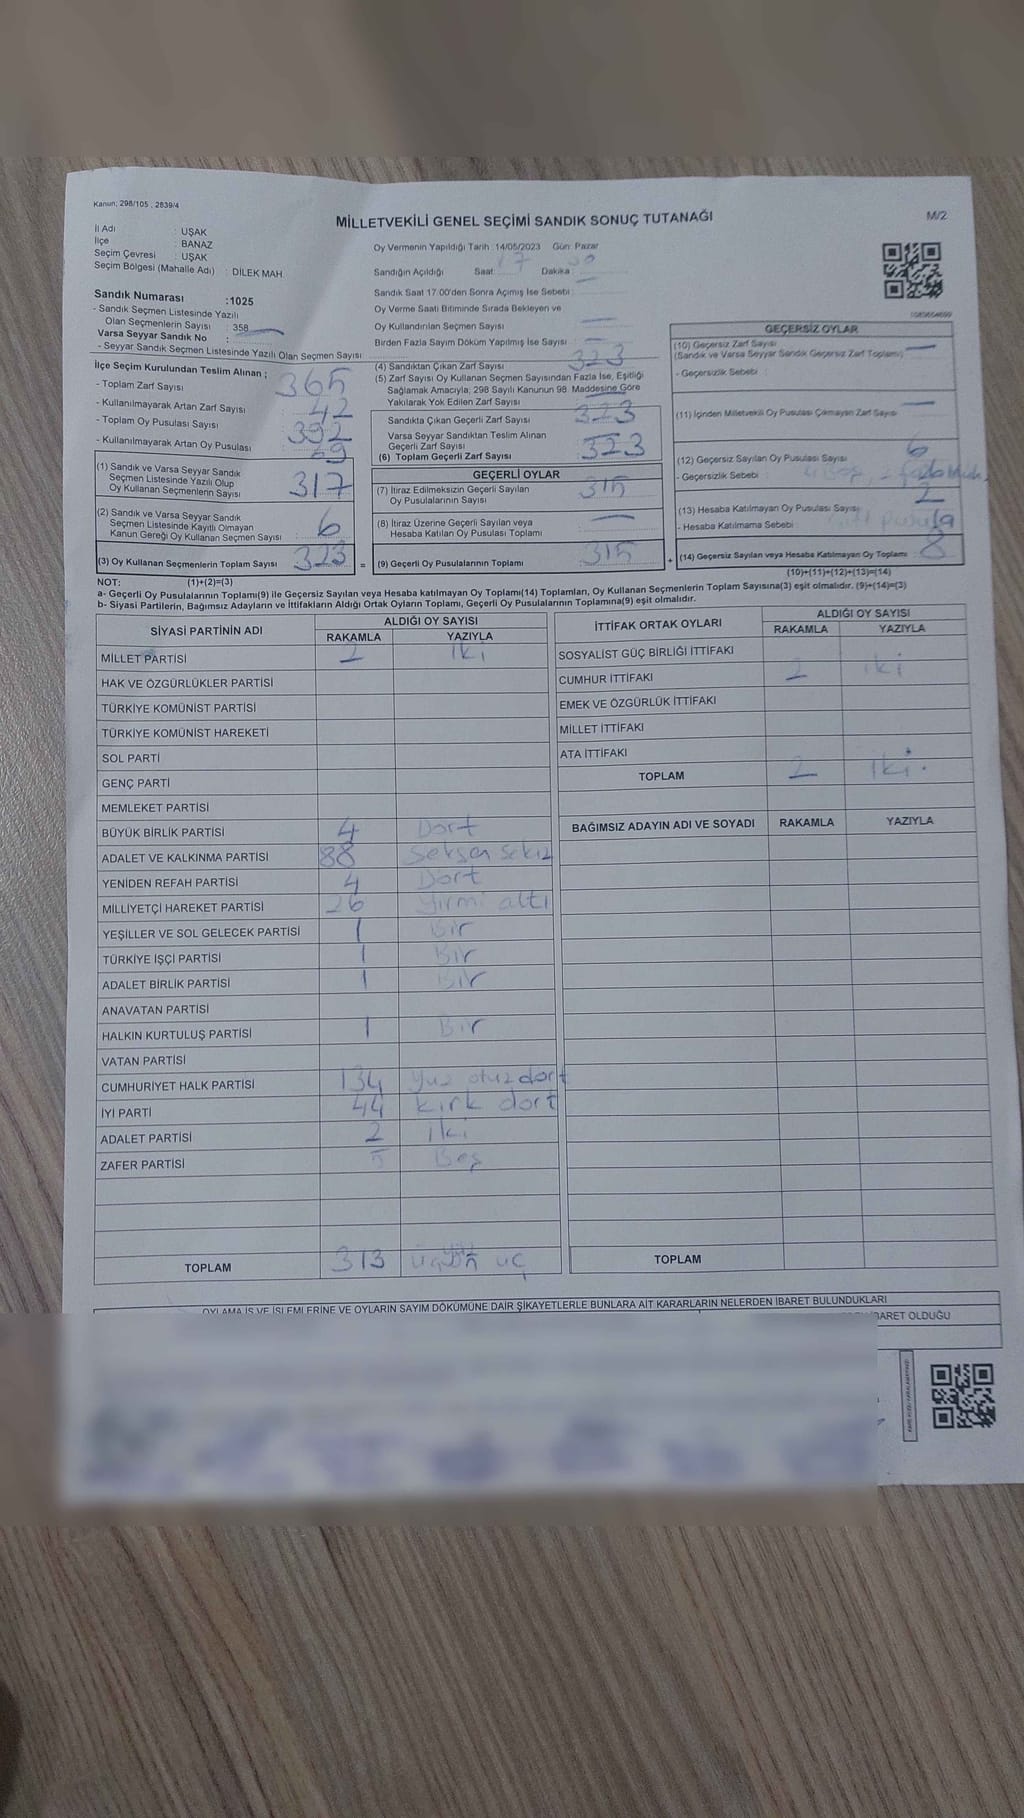 Kanun; 298/105 , 2839/4
MİLLETVEKİLİ GENEL SEÇİMİ SANDIK SONUÇ TUTANAĞI
M/2
İl Adı : UŞAK
İlçe : BANAZ
Seçim Çevresi : UŞAK
Seçim Bölgesi (Mahalle Adı) : DİLEK MAH
Sandık Numarası :1025
- Sandık Seçmen Listesinde Yazılı
Olan Seçmenlerin Sayısı : 358
Varsa Seyyar Sandık No :
- Seyyar Sandık Seçmen Listesinde Yazılı Olan Seçmen Sayısı :
Oy Vermenin Yapıldığı Tarih :14/05/2023 Gün: Pazar
Sandığın Açıldığı Saat : 17 Dakika :
Sandık Saat 17.00'den Sonra Açımış İse Sebebi :
Oy Verme Saati Bitiminde Sırada Bekleyen ve
Oy Kullandırılan Seçmen Sayısı :
Birden Fazla Sayım Döküm Yapılmış İse Sayısı :
İlçe Seçim Kurulundan Teslim Alınan ;
- Toplam Zarf Sayısı 365
- Kullanılmayarak Artan Zarf Sayısı 42
- Toplam Oy Pusulası Sayısı 392
- Kullanılmayarak Artan Oy Pusulası 69
(1) Sandık ve Varsa Seyyar Sandık
Seçmen Listesinde Yazılı Olup
Oy Kullanan Seçmenlerin Sayısı 317
(2) Sandık ve Varsa Seyyar Sandık
Seçmen Listesinde Kayıtlı Olmayan
Kanun Gereği Oy Kullanan Seçmen Sayısı : 6
(3) Oy Kullanan Seçmenlerin Toplam Sayısı 323 =
(4) Sandıktan Çıkan Zarf Sayısı 323
(5) Zarf Sayısı Oy Kullanan Seçmen Sayısından Fazla İse, Eşitliği
Sağlamak Amacıyla; 298 Sayılı Kanunun 98. Maddesine Göre
Yakılarak Yok Edilen Zarf Sayısı
Sandıkta Çıkan Geçerli Zarf Sayısı 323
Varsa Seyyar Sandıktan Teslim Alınan
Geçerli Zarf Sayısı
(6) Toplam Geçerli Zarf Sayısı 323
GEÇERLİ OYLAR
(7) İtiraz Edilmeksizin Geçerli Sayılan
Oy Pusulalarının Sayısı 315
(8) İtiraz Üzerine Geçerli Sayılan veya
Hesaba Katılan Oy Pusulası Toplamı
(9) Geçerli Oy Pusulalarının Toplamı 315 +
GEÇERSİZ OYLAR
(10) Geçersiz Zarf Sayısı
(Sandık ve Varsa Seyyar Sandık Geçersiz Zarf Toplamı)
- Geçersizlik Sebebi :
(11) İçinden Milletvekili Oy Pusulası Çıkmayan Zarf Sayısı
(12) Geçersiz Sayılan Oy Pusulası Sayısı 6
- Geçersizlik Sebebi :
(13) Hesaba Katılmayan Oy Pusulası Sayısı 2
- Hesaba Katılmama Sebebi : pusula
(14) Geçersiz Sayılan veya Hesaba Katılmayan Oy Toplamı : 8
NOT: (1)+(2)=(3)
(10)+(11)+(12)+(13)=(14)
a- Geçerli Oy Pusulalarının Toplamı(9) ile Geçersiz Sayılan veya Hesaba katılmayan Oy Toplamı(14) Toplamları, Oy Kullanan Seçmenlerin Toplam Sayısına(3) eşit olmalıdır. (9)+(14)=(3)
b- Siyasi Partilerin, Bağımsız Adayların ve İttifakların Aldığı Ortak Oyların Toplamı, Geçerli Oy Pusulalarının Toplamına(9) eşit olmalıdır.
SİYASİ PARTİNİN ADI ALDIĞI OY SAYISI
RAKAMLA YAZIYLA
MİLLET PARTİSİ 2 iki
HAK VE ÖZGÜRLÜKLER PARTİSİ
TÜRKİYE KOMÜNİST PARTİSİ
TÜRKİYE KOMÜNİST HAREKETİ
SOL PARTİ
GENÇ PARTİ
MEMLEKET PARTİSİ
BÜYÜK BİRLİK PARTİSİ 4 Dört
ADALET VE KALKINMA PARTİSİ 88 Seksen sekiz
YENİDEN REFAH PARTİSİ 4 Dört
MİLLİYETÇİ HAREKET PARTİSİ 26 yirmi altı
YEŞİLLER VE SOL GELECEK PARTİSİ 1 Bir
TÜRKİYE İŞÇİ PARTİSİ 1 Bir
ADALET BİRLİK PARTİSİ 1 Bir
ANAVATAN PARTİSİ
HALKIN KURTULUŞ PARTİSİ 1 Bir
VATAN PARTİSİ
CUMHURİYET HALK PARTİSİ 134 yüz otuz dört
İYİ PARTİ 44 kırk dört
ADALET PARTİSİ 2 iki
ZAFER PARTİSİ 5 Beş
TOPLAM 313
İTTİFAK ORTAK OYLARI ALDIĞI OY SAYISI
RAKAMLA YAZIYLA
SOSYALİST GÜÇ BİRLİĞİ İTTİFAKI
CUMHUR İTTİFAKI 2 iki
EMEK VE ÖZGÜRLÜK İTTİFAKI
MİLLET İTTİFAKI
ATA İTTİFAKI
TOPLAM 2 iki.
BAĞIMSIZ ADAYIN ADI VE SOYADI RAKAMLA YAZIYLA
TOPLAM
OYLAMA İŞ VE İŞLEMLERİNE VE OYLARIN SAYIM DÖKÜMÜNE DAİR ŞİKAYETLERLE BUNLARA AİT KARARLARIN NELERDEN İBARET BULUNDUKLARI
İBARET OLDUĞU